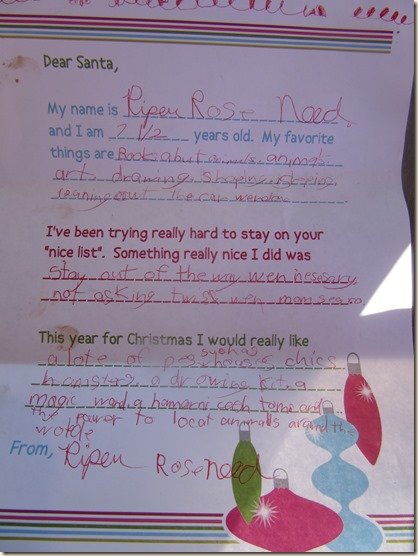 Dear Santa,
My name is Ripen Rose Naed
and I am 7 1/2 years old. My favorite
things are Book about animals, anymals
art, drawing, shoping, sleping,
out the car wendow.
I've been trying really hard to stay on your
"nice list". Something really nice I did was
stay out of the way wen nesesary,
not asking twiss wen mom ses no.
This year for Christmas I would really like
a lote of such as chics
hamster, a drawing kit, a
magic wand, a
the power to locat anymals around the
world
From, Ripen Rose Naed